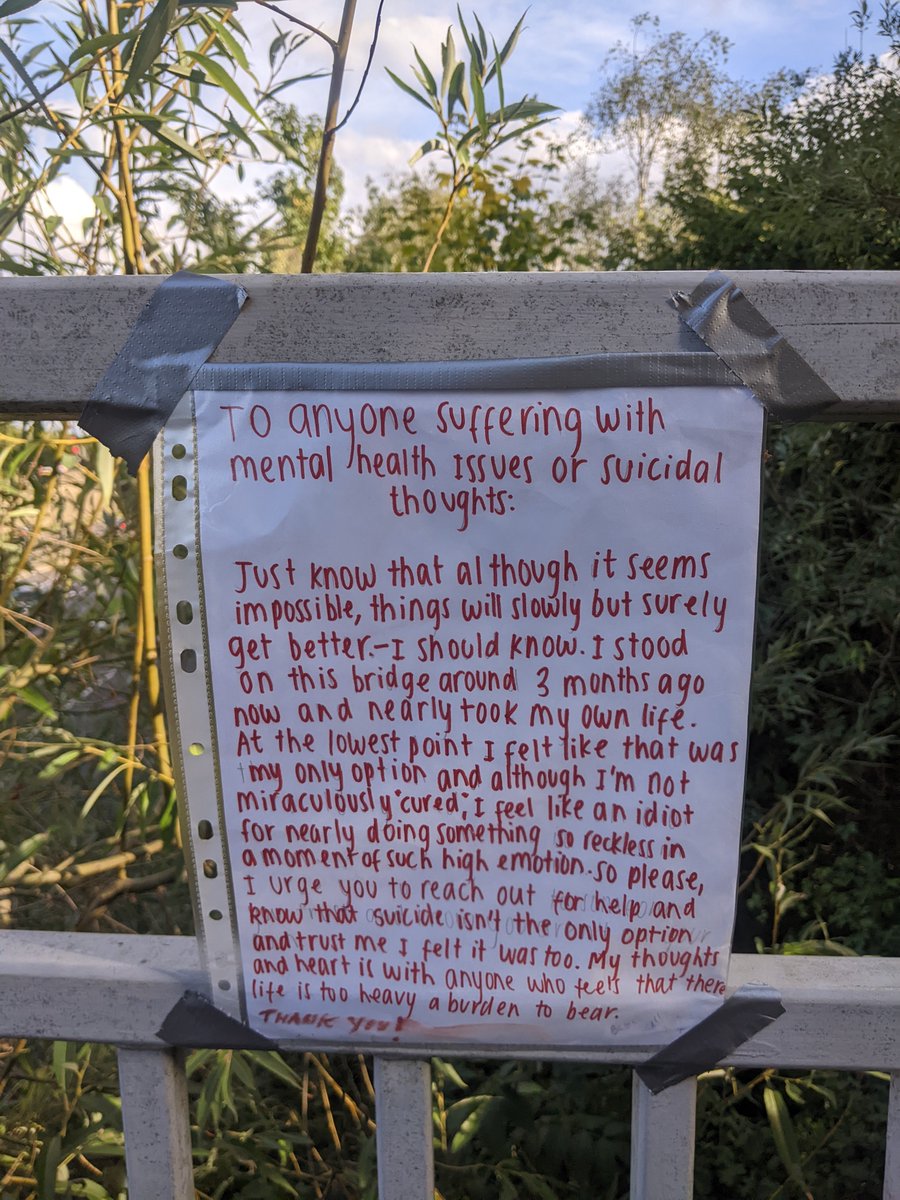 TO anyone suffering with
mental health issues or suicidal
thoughts:
Just know that although it seems
impossible, things will slowly but surely
get better.-I should know. I stood
on this bridge around 3 months ago
now and nearly took my own life.
At the lowest point I felt like that was
my only option and although I'm not
miraculously "cured", I feel like an idiot
for nearly doing something so reckless in
a moment of such high emotion. so please,
I urge you to reach out for help and
know that suicide isn't the only option
and trust me I felt it was too. My thoughts
and heart is with anyone who feels that there
life is too heavy a burden to bear.
THANK YOU!